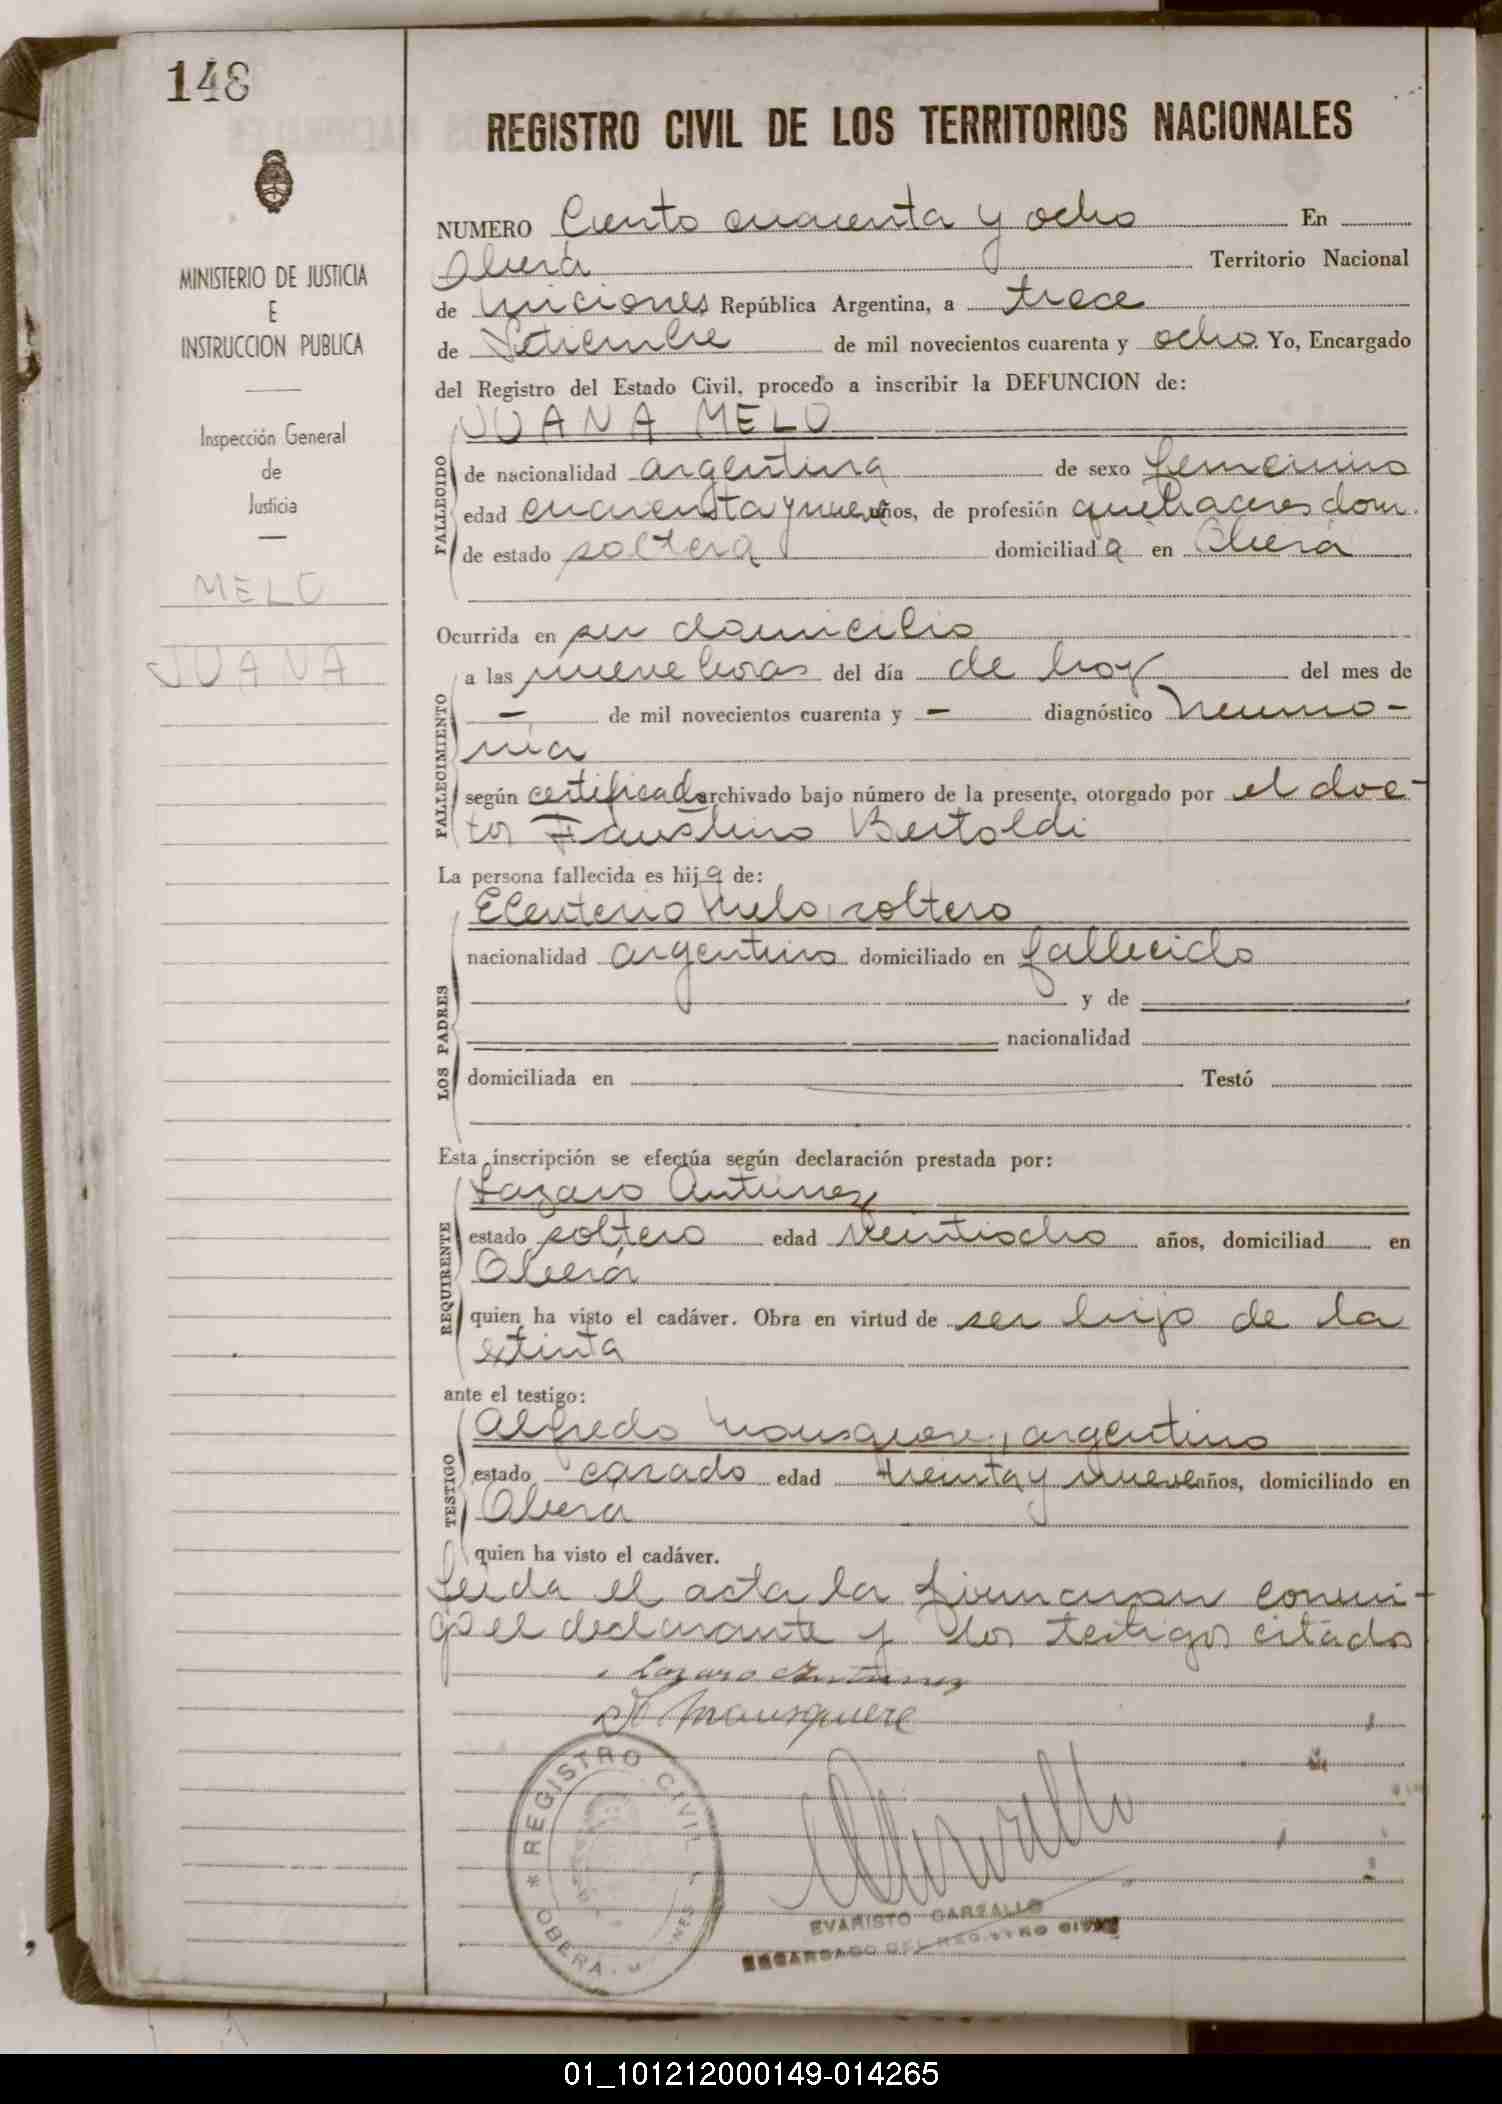 148
REGISTRO CIVIL DE LOS TERRITORIOS NACIONALES
MINISTERIO DE JUSTICIA
E
INSTRUCCION PUBLICA
Inspección General
de
Justicia
MELO
JUANA
NUMERO Ciento cuarenta y ocho En
Oberá Territorio Nacional
de Misiones República Argentina, a trece
de Setiembre de mil novecientos cuarenta y ocho. Yo, Encargado
del Registro del Estado Civil, procedo a inscribir la DEFUNCION de:
JUANA MELO
FALLECIDO
de nacionalidad argentina de sexo femenino
edad cuarenta y nueve años, de profesión quehaceres dom.
de estado soltera domiciliad a en Oberá
Ocurrida en su domicilio
FALLECIMIENTO
a las nueve horas del día de hoy del mes de
— de mil novecientos cuarenta y — diagnóstico Neumo-
nía
según certificado archivado bajo número de la presente, otorgado por el doc-
tor Faustino Bertoldi
La persona fallecida es hij a de:
LOS PADRES
Eleuterio Melo, soltero
nacionalidad argentino domiciliado en fallecido
y de
nacionalidad
domiciliada en Testó
Esta inscripción se efectúa según declaración prestada por:
REQUIRENTE
Lazaro Antunez
estado soltero edad veintiocho años, domiciliad en
Oberá
quien ha visto el cadáver. Obra en virtud de ser hijo de la
extinta
ante el testigo:
TESTIGO
Alfredo Mousquere, argentino
estado casado edad treinta y nueve años, domiciliado en
Oberá
quien ha visto el cadáver.
Leída el acta la firmaron conmi-
go el declarante y los testigos citado
Lazaro Antunez
A Mousquere
* REGISTRO CIVIL
OBERA
EVARISTO GARZALLO
ENCARGADO DEL REGISTRO CIVIL
01_101212000149-014265